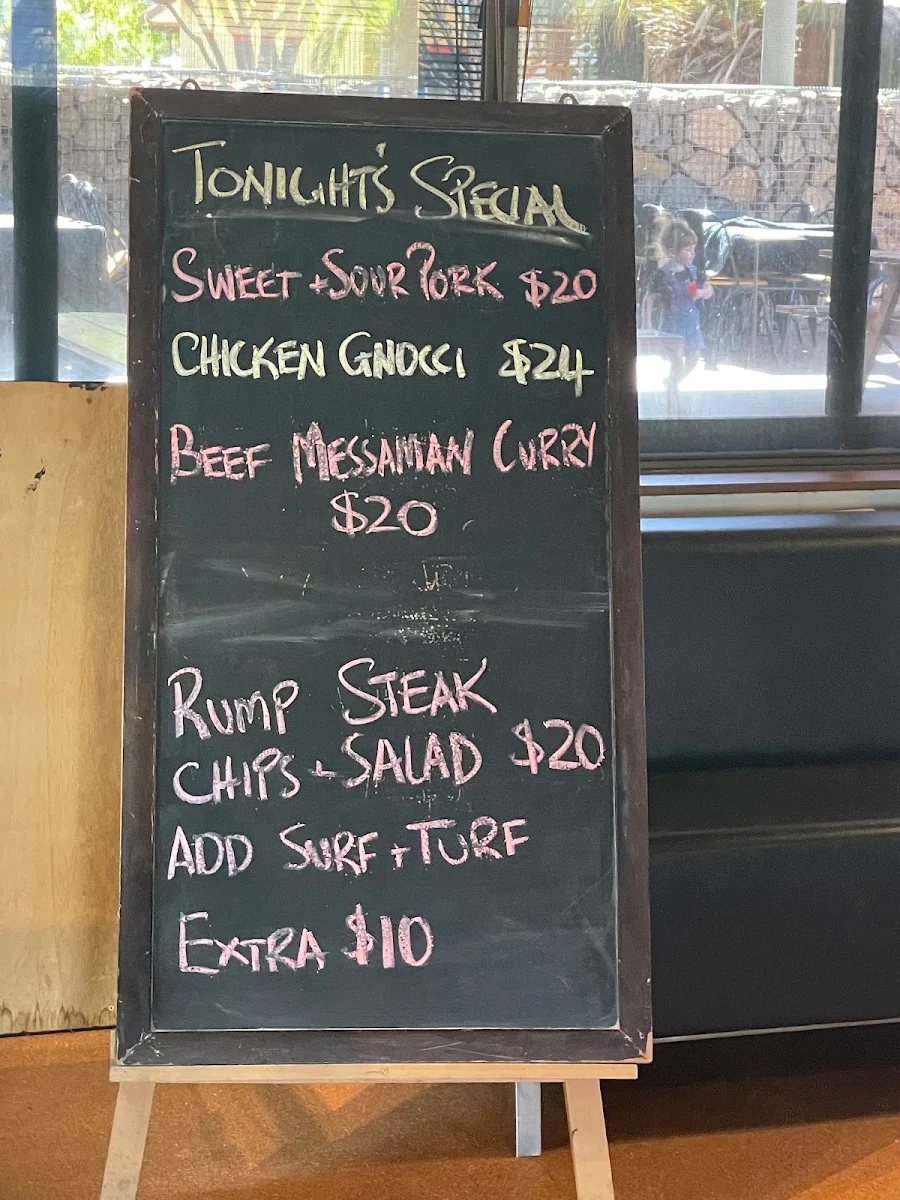 TONIGHT'S SPECIAL
SWEET + SOUR PORK $20
CHICKEN GNOCCI $24
BEEF MESSAMAN CURRY
$20
RUMP STEAK
CHIPS + SALAD $20
ADD SURF + TURF
EXTRA $10